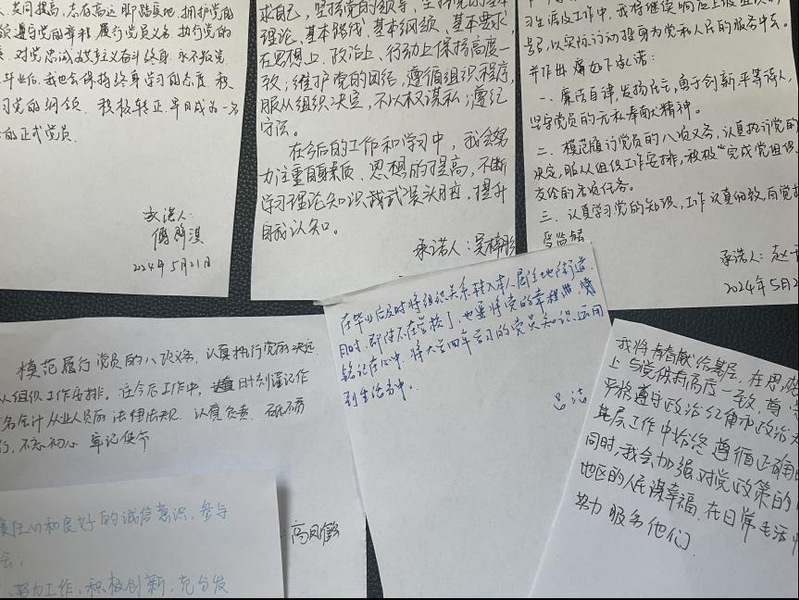 共同提高,志存高远脚踏实地,拥护党的
遵守党的章程履行党员义务 执行党的
对党忠诚 为共产主义奋斗终身 永不叛党
毕业后,我也会保持终身学习的态度 积
习党的纲领 积极转正 早日成为一名
的正式党员
承诺人:
2024年5月21日
求自己,坚持党的领导,坚持党的基本
理论、基本路线、基本纲领、基本要求,
在思想上、政治上、行动上保持高度一
致;维护党的团结,遵循组织程序,
服从组织决定,不以权谋私;遵纪
守法。
在今后的工作和学习中,我会努
力注重自身素质、思想的提高,不断
学习理论知识、武装头脑,提升
自我认知。
承诺人:吴
习生活及工作中,我将继续响应上级组织
号召,以实际行动投身为党和人民的服务中去。
并作出 如下承诺:
一、廉洁自律,发扬民主,勇于创新,平等待人,
坚守党员的无私奉献精神。
二、模范履行党员的八项义务,认真执行党的
决定,服从组织工作安排,积极完成党组织
交给的各项任务。
三、认真学习党的知识,工作认真细致,自觉接
受监督
承诺人:赵一
2024年5月2
模范履行党员的八项义务,认真执行党的决定
从组织工作安排。在今后工作中,时刻谨记作
名会计从业人员的法律法规、认真负责、
不忘初心 牢记使命
高凤
在毕业后及时将组织关系转入本人居住地所街道
同时,即使不在学校了,也要将党的章程
铭记在心中。将大学四年学习的党员知识运用
到生活当中。
吕洁
我将青春献给基层,在思想
上与党保持高度一致,尊
严格遵守政治纪律和政治
基层工作中始终遵循正确的
同时,我会加强对党政策的
地区的人民谋幸福,在日常生活中
努力服务他们
责任心和良好的诚信意识,参与
会。
努力工作,积极创新,充分发